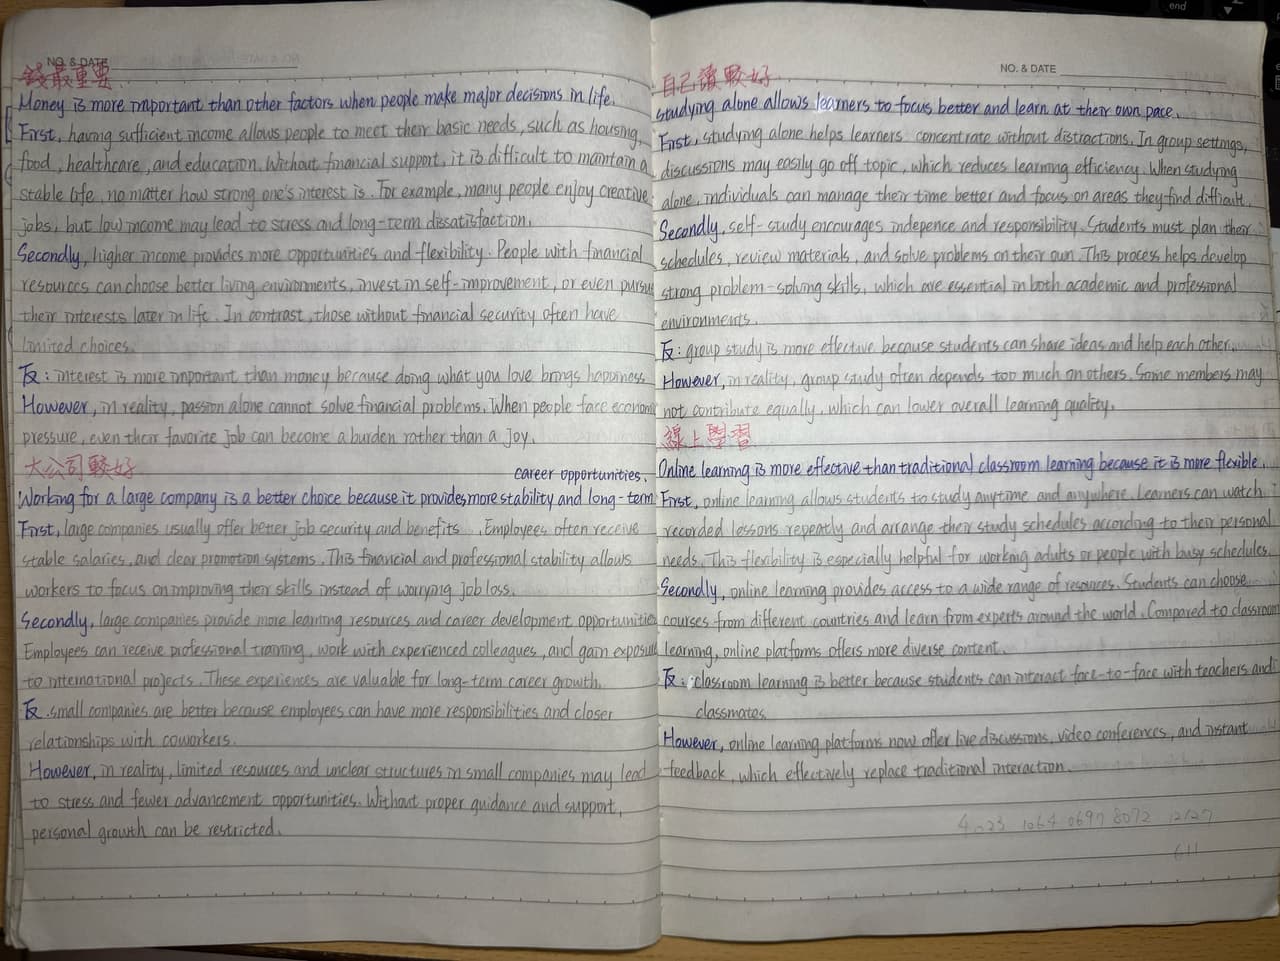 end
NO. & DATE
錢最重要
Money is more important than other factors when people make major decisions in life.
First, having sufficient income allows people to meet their basic needs, such as housing,
food, healthcare, and education. Without financial support, it is difficult to maintain a
stable life, no matter how strong one's interest is. For example, many people enjoy creative
jobs, but low income may lead to stress and long-term dissatisfaction.
Secondly, higher income provides more opportunities and flexibility. People with financial
resources can choose better living environments, invest in self-improvement, or even pursue
their interests later in life. In contrast, those without financial security often have
limited choices.
反: interest is more important than money because doing what you love brings happiness
However, in reality, passion alone cannot solve financial problems. When people face economi
pressure, even their favorite job can become a burden rather than a joy.
大公司較好
career opportunities.
Working for a large company is a better choice because it provides more stability and long-term
First, large companies usually offer better job security and benefits. Employees often receive
stable salaries, and clear promotion systems. This financial and professional stability allows
workers to focus on improving their skills instead of worrying job loss.
Secondly, large companies provide more learning resources and career development opportunitie
Employees can receive professional training, work with experienced colleagues, and gain exposure
to international projects. These experiences are valuable for long-term career growth.
反. small companies are better because employees can have more responsibilities and closer
relationships with coworkers.
However, in reality, limited resources and unclear structures in small companies may lead
to stress and fewer advancement opportunities. Without proper guidance and support,
personal growth can be restricted.
NO. & DATE
自己讀較好
studying alone allows learners to focus better and learn at their own pace.
First, studying alone helps learners concentrate without distractions. In group settings,
discussions may easily go off topic, which reduces learning efficiency. When studying
alone, individuals can manage their time better and focus on areas they find difficult.
Secondly, self-study encourages indepence and responsibility. Students must plan their
schedules, review materials, and solve problems on their own. This process helps develop
strong problem-solving skills, which are essential in both academic and professional
environments.
反: group study is more effective because students can share ideas and help each other.
However, in reality, group study often depends too much on others. Some members may
not contribute equally, which can lower overall learning quality.
線上學習
Online learning is more effective than traditional classroom learning because it is more flexible.
First, online learning allows students to study anytime and anywhere. Learners can watch
recorded lessons repeatly and arrange their study schedules according to their personal
needs. This flexibility is especially helpful for working adults or people with busy schedules.
Secondly, online learning provides access to a wide range of resources. Students can choose
courses from different countries and learn from experts around the world. Compared to classroom
learning, online platforms offers more diverse content.
反: classroom learning is better because students can interact face-to-face with teachers and
classmates.
However, online learning platforms now offer live discussions, video conferences, and instant
feedback, which effectively replace traditional interaction.
1064 0697 8072 12/27
611